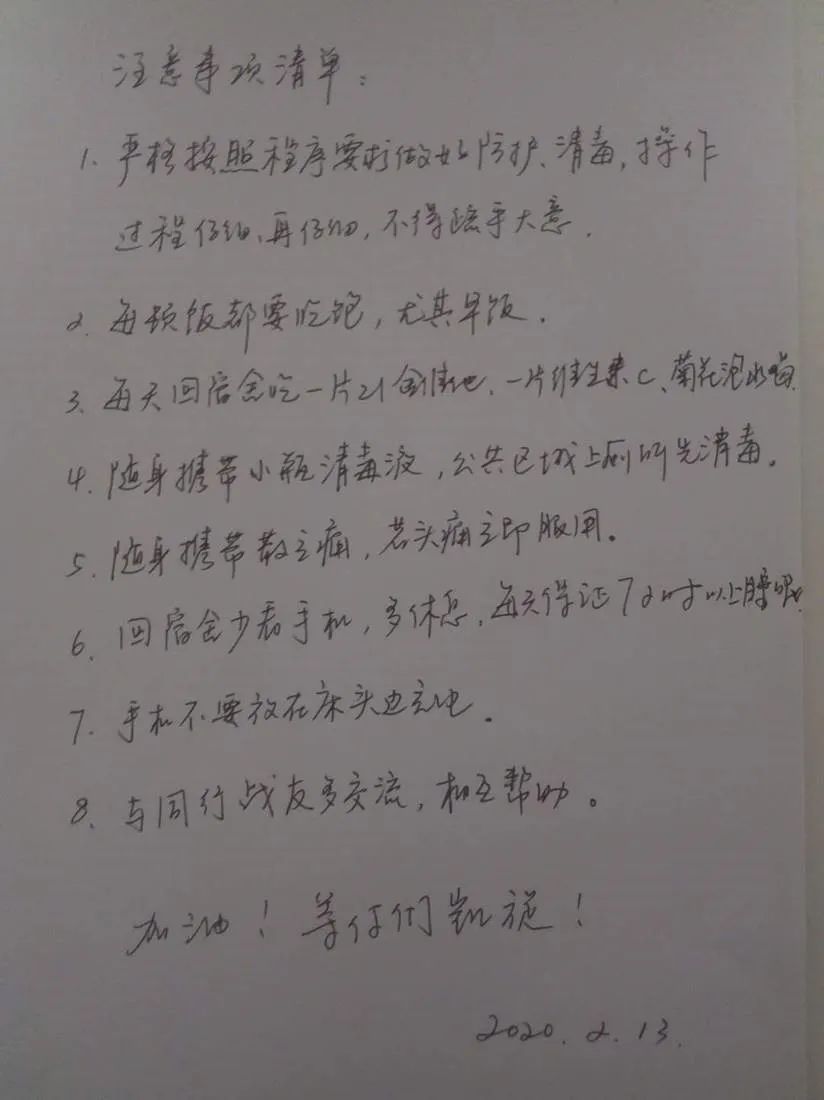 注意事项清单:
1. 严格按照程序要求做好防护、清毒,操作
过程仔细、再仔细,不得疏乎大意.
2. 每顿饭都要吃饱,尤其早饭.
3. 每天回宿舍吃一片21金维他、一片维生素C、菊花泡水喝.
4. 随身携带小瓶清毒液,公共区域上厕所先消毒。
5. 随身携带散立痛,若头痛立即服用。
6. 回宿舍少看手机,多休息,每天保证7小时以上睡眠.
7. 手机不要放在床头边充电.
8. 与同行战友多交流,相互帮助。
加油!等你们凯旋!
2020.2.13.